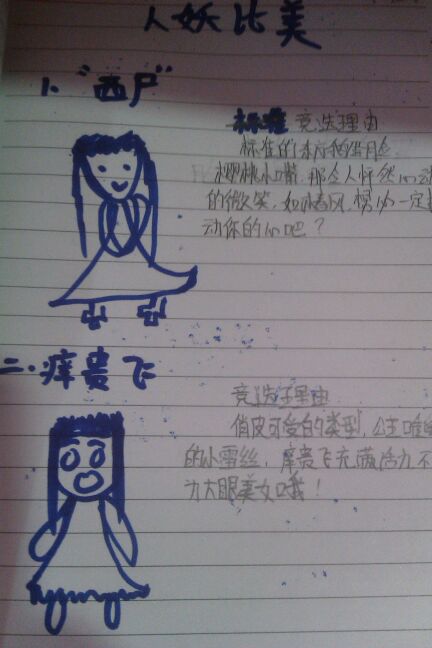 人妖比美
1."西尸"
标准 竞选理由
标准的东方鹅蛋脸
樱桃小嘴,那令人怦然心动
的微笑,如沐春风,想必一定
动你的心吧?
二.痒贵飞
竞选理由
俏皮可爱的类型,公主唯
的小蕾丝,痒贵飞充满活力不
为大眼美女哦!